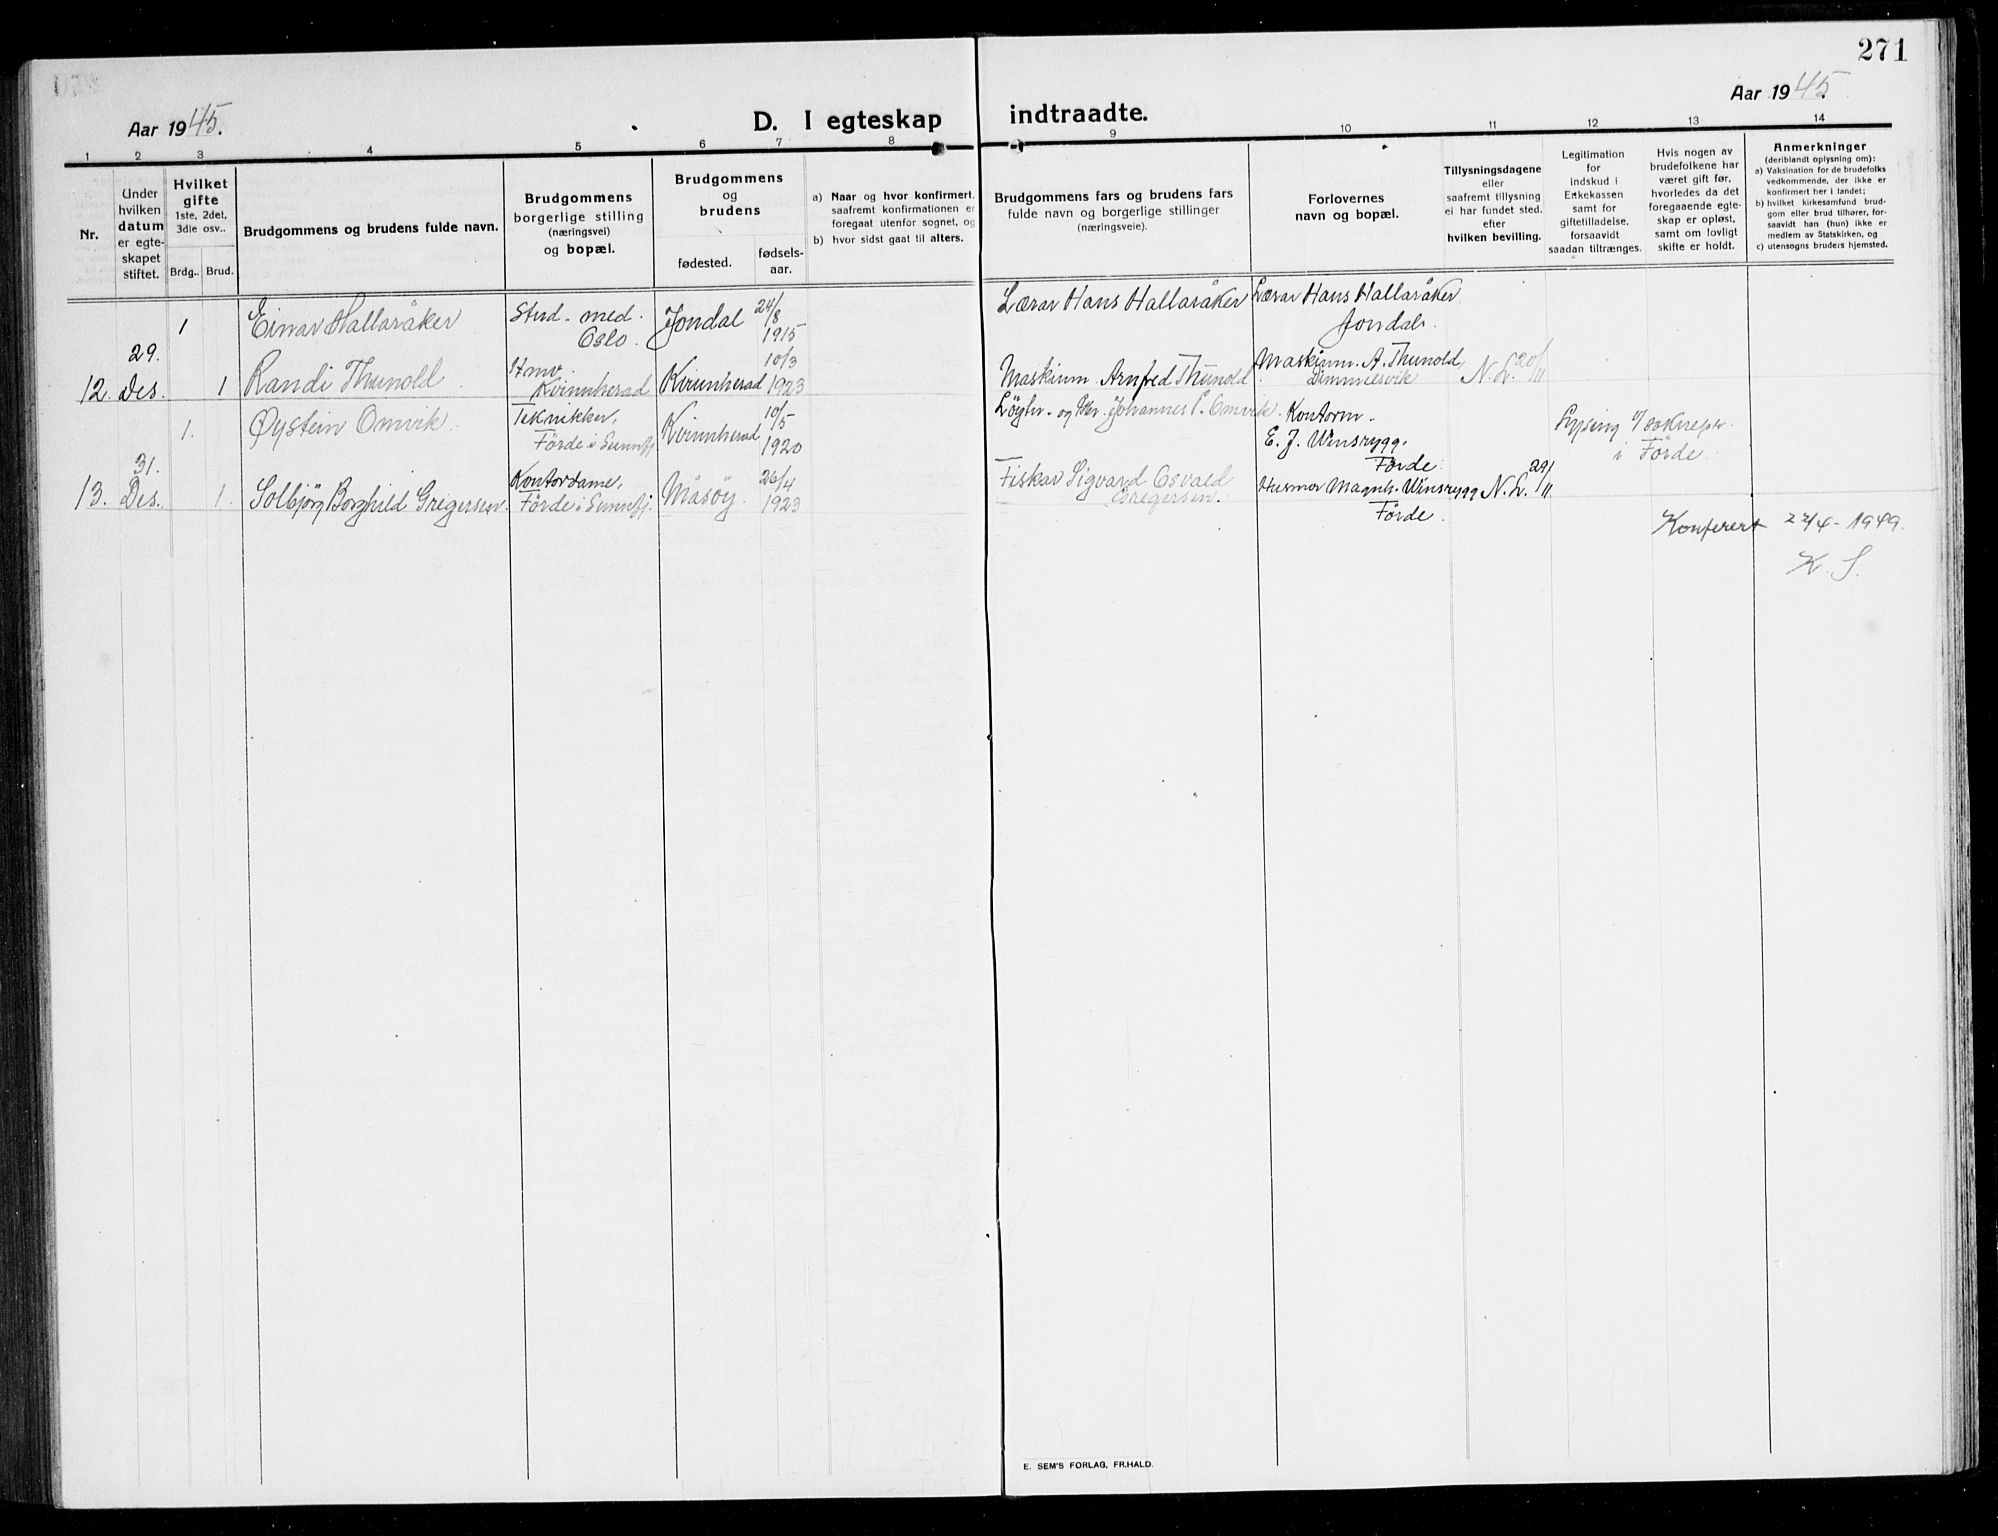 271
Aar 1945.
D. I egteskap indtraadte.
Aar 1945.
1 2 3 4 5 6 7 8 9 10 11 12 13 14
Nr.
Under
hvilken
datum
er egte-
skapet
stiftet.
Hvilket
gifte
1ste, 2det,
3die osv..
Brdg.. Brud.
Brudgommens og brudens fulde navn.
Brudgommens
borgerlige stilling
(næringsvei)
og bopæl.
Brudgommens
og
brudens
fødested.
fødsels-
aar.
a) Naar og hvor konfirmert,
saafremt konfirmationen er
foregaat utenfor sognet, og
b) hvor sidst gaat til alters.
Brudgommens fars og brudens fars
fulde navn og borgerlige stillinger
(næringsveie).
Forlovernes
navn og bopæl.
Tillysningsdagene
eller
saafremt tillysning
ei har fundet sted.
efter
hvilken bevilling.
Legitimation
for
indskud i
Enkekassen
samt for
giftetilladelse,
forsaavidt
saadan tiltrænges.
Hvis nogen av
brudefolkene har
været gift før,
hvorledes da det
foregaaende egte-
skap er opløst,
samt om lovligt
skifte er holdt.
Anmerkninger
(deriblandt oplysning om):
a) Vaksination for de brudefolks
vedkommende, der ikke er
konfirmert her i landet;
b) hvilket kirkesamfund brud-
gom eller brud tilhører, for-
saavidt han (hun) ikke er
medlem av Statskirken, og
c) utensogns bruders hjemsted.
1 Einar Hallaråker Stud. med. Oslo. Jondal 24/8 1915 Lærar Hans Hallaråker Lærar Hans Hallaråker Jondal.
12. 29. Des. 1 Randi Thunold Kvinnherad Kvinnherad 10/3 1923 Maskinm. Arnfred Thunold Maskinm. A. Thunold, Dimmelsvik N. L. 20/11
1. Øystein Omvik. Teknikker, Förde i Sunnfj. Kvinnherad 10/5 1920 Johannes P. Omvik. Kontorm. E. J. Vinsrygg, Förde. Lysing i Förde.
13. 31. Des. 1. Solbjörg Borghild Gregersen. Kontordame, Förde i Sunnfj. Måsöy. 26/4 1923 Fiskar Sigvard Osvald Gregersen. Husmor Magnh. Vinsrygg Förde. N. L. 29/11
Konferert 22/4 - 1949.
K. S.
E. SEM'S FORLAG, FR.HALD.